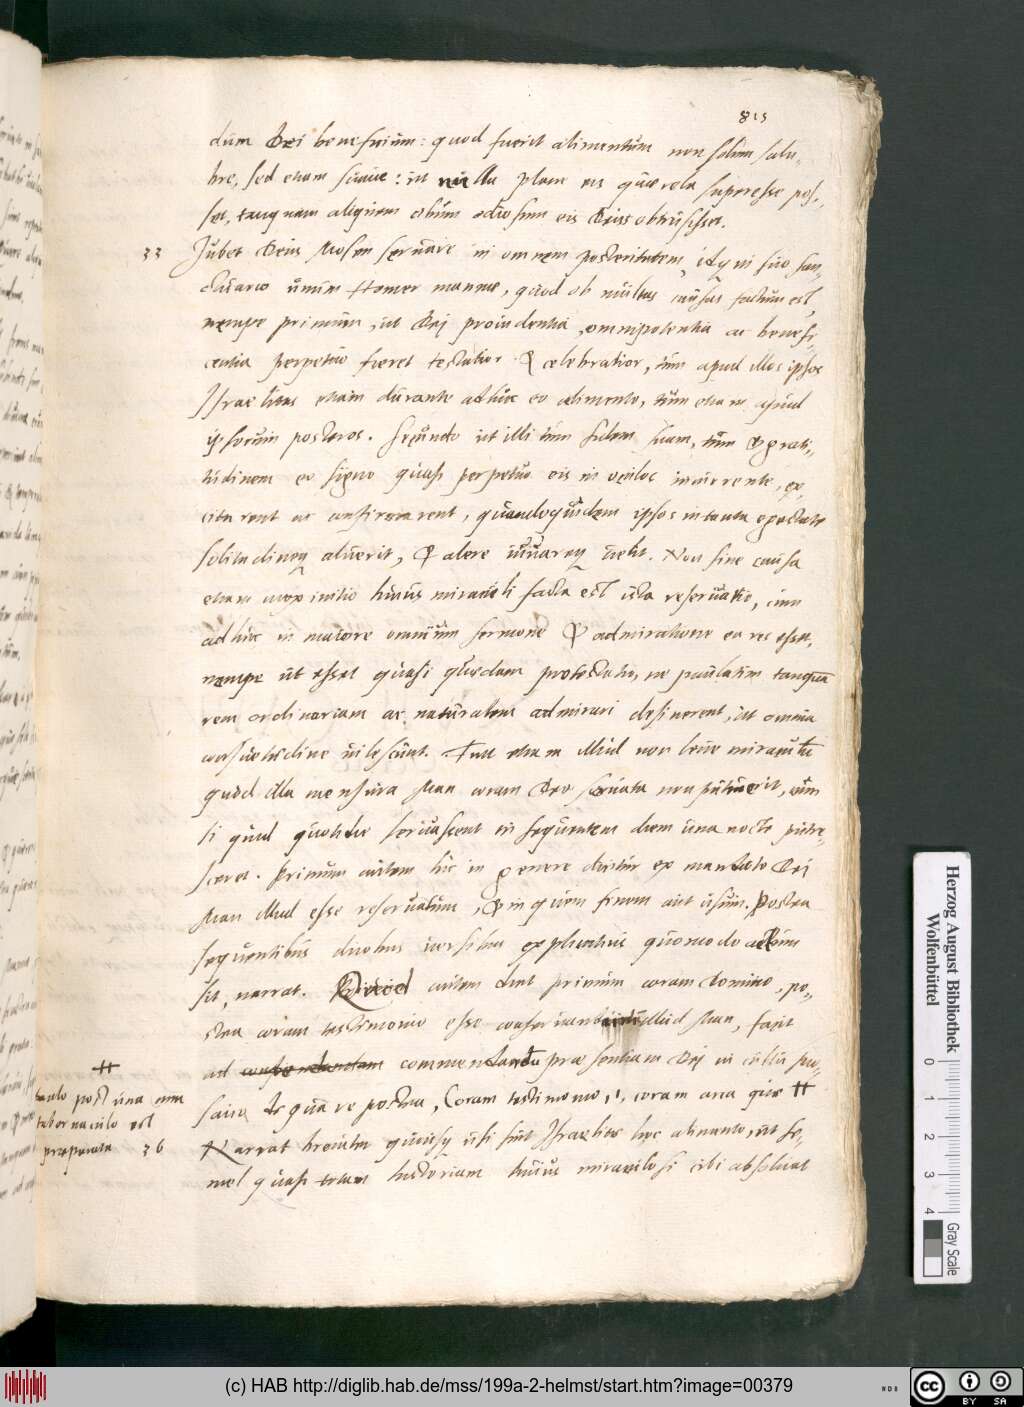 815
dum Dei beneficium: quod fuerit alimentum non solum salu-
bre, sed etiam suave: ut nulla plane eis querela superesse pos-
set, tanquam aliquem cibum odiosum eis Deus obtrusisset.
33 Jubet Deus Mosen servare in omnem posteritatem, idq in suo san-
ctuario unum Homer mannae, quod ob multas causas factum est,
nempe primum, ut Dei providentia, omnipotentia ac benefi-
centia perpetuo fieret testatior & celebratior, tum apud illos ipsos
Israelitas etiam durante adhuc eo alimento, tum etiam apud
ipsorum posteros. Secundo ut illi tum fidem suam, tum & grati-
tudinem eo signo quasi perpetuo eis in oculos incurrente, ex-
citarent ac confirmarent, quandoquidem ipsos in tanta egestate
solitudineq aluerit, & alere
Non sine causa
etiam mox initio huius miraculi facta est ista reservatio, cum
adhuc in maiore omnium sermone & admiratione ea res esset,
nempe ut esset quasi quaedam protestatio, ne paulatim tanquam
rem ordinariam ac naturalem admirari desinerent, ut omnia
consuetudine vilescunt. Fuit etiam illud non leve miraculum
quod illa mensura Man coram Deo servata non putruerit, cum
si quid quotidie servassent in sequentem diem una nocte putre-
sceret. Primum autem hic in genere dicitur ex mandato Dei
Man illud esse reservatum, & in quem finem aut usum. Postea
sequentibus duobus versibus explicatius quomodo actum
sit, narrat. Quod autem dicit primum coram Domino, po-
stea coram testimonio esse conservandum illud Man, facit
ad conservandam commendandam praesentiam Dei in cultu suo
Coram testimonio, i. coram arca quae #
# tanto post una cum
tabernaculo est
praeparata
36 Narrat breviter quousq usi sint Israelitae hoc alimento, ut se-
mel quasi totam historiam huius miraculosi cibi absolvat
Herzog August Bibliothek
Wolfenbüttel
0 1 2 3 4
Gray Scale
(c) HAB http://diglib.hab.de/mss/199a-2-helmst/start.htm?image=00379
cc BY SA